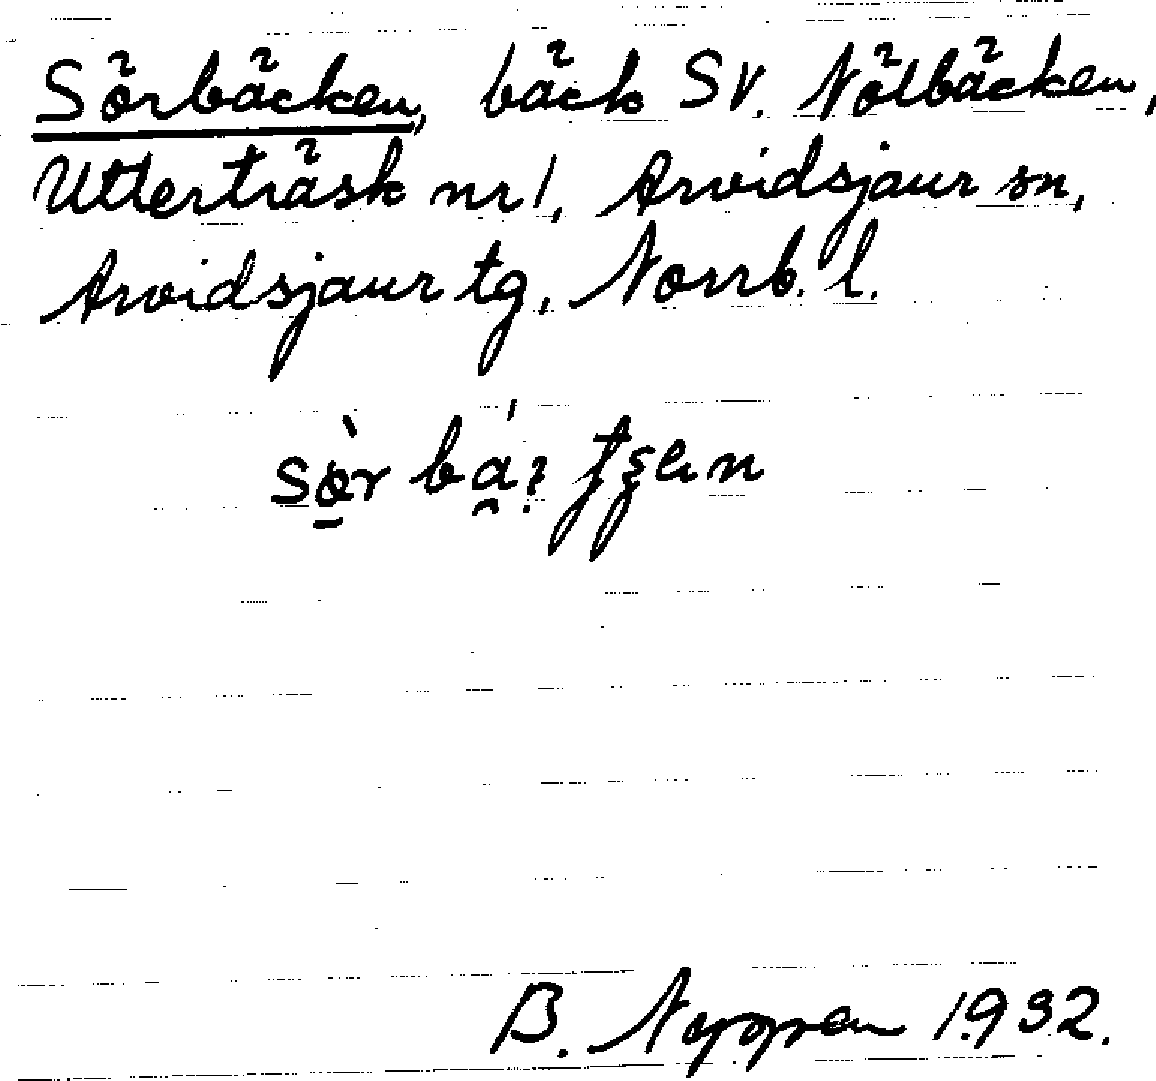 Sörbäcken, bäck SV. Nölbäcken,
Utterträsk nr 1, Arvidsjaur sn,
Arvidsjaur tg, Norrb. l.
B. 1932.